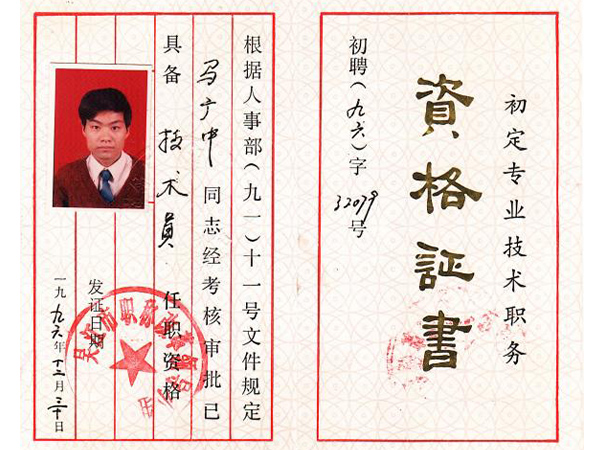 初定专业技术职务
資格証書
初聘(九六)字32079号
根据人事部(九一)十一号文件规定
马广中同志经考核审批已
具备技术员任职资格
发证日期
一九九六年十二月三十日